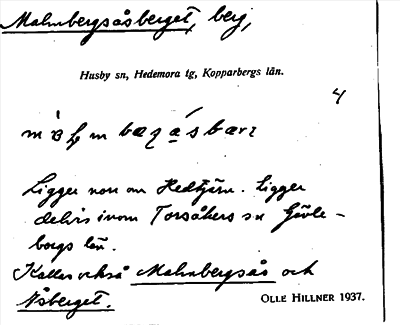 Malmbergsåsberget, berg,
Husby sn, Hedemora tg, Kopparbergs län.
4
Ligger nv om Hedtjärn. Ligger
delvis inom Torsåkers sn Gävle-
borgs län.
Kallas också Malmbergsås och
Åsberget.
OLLE HILLNER 1937.